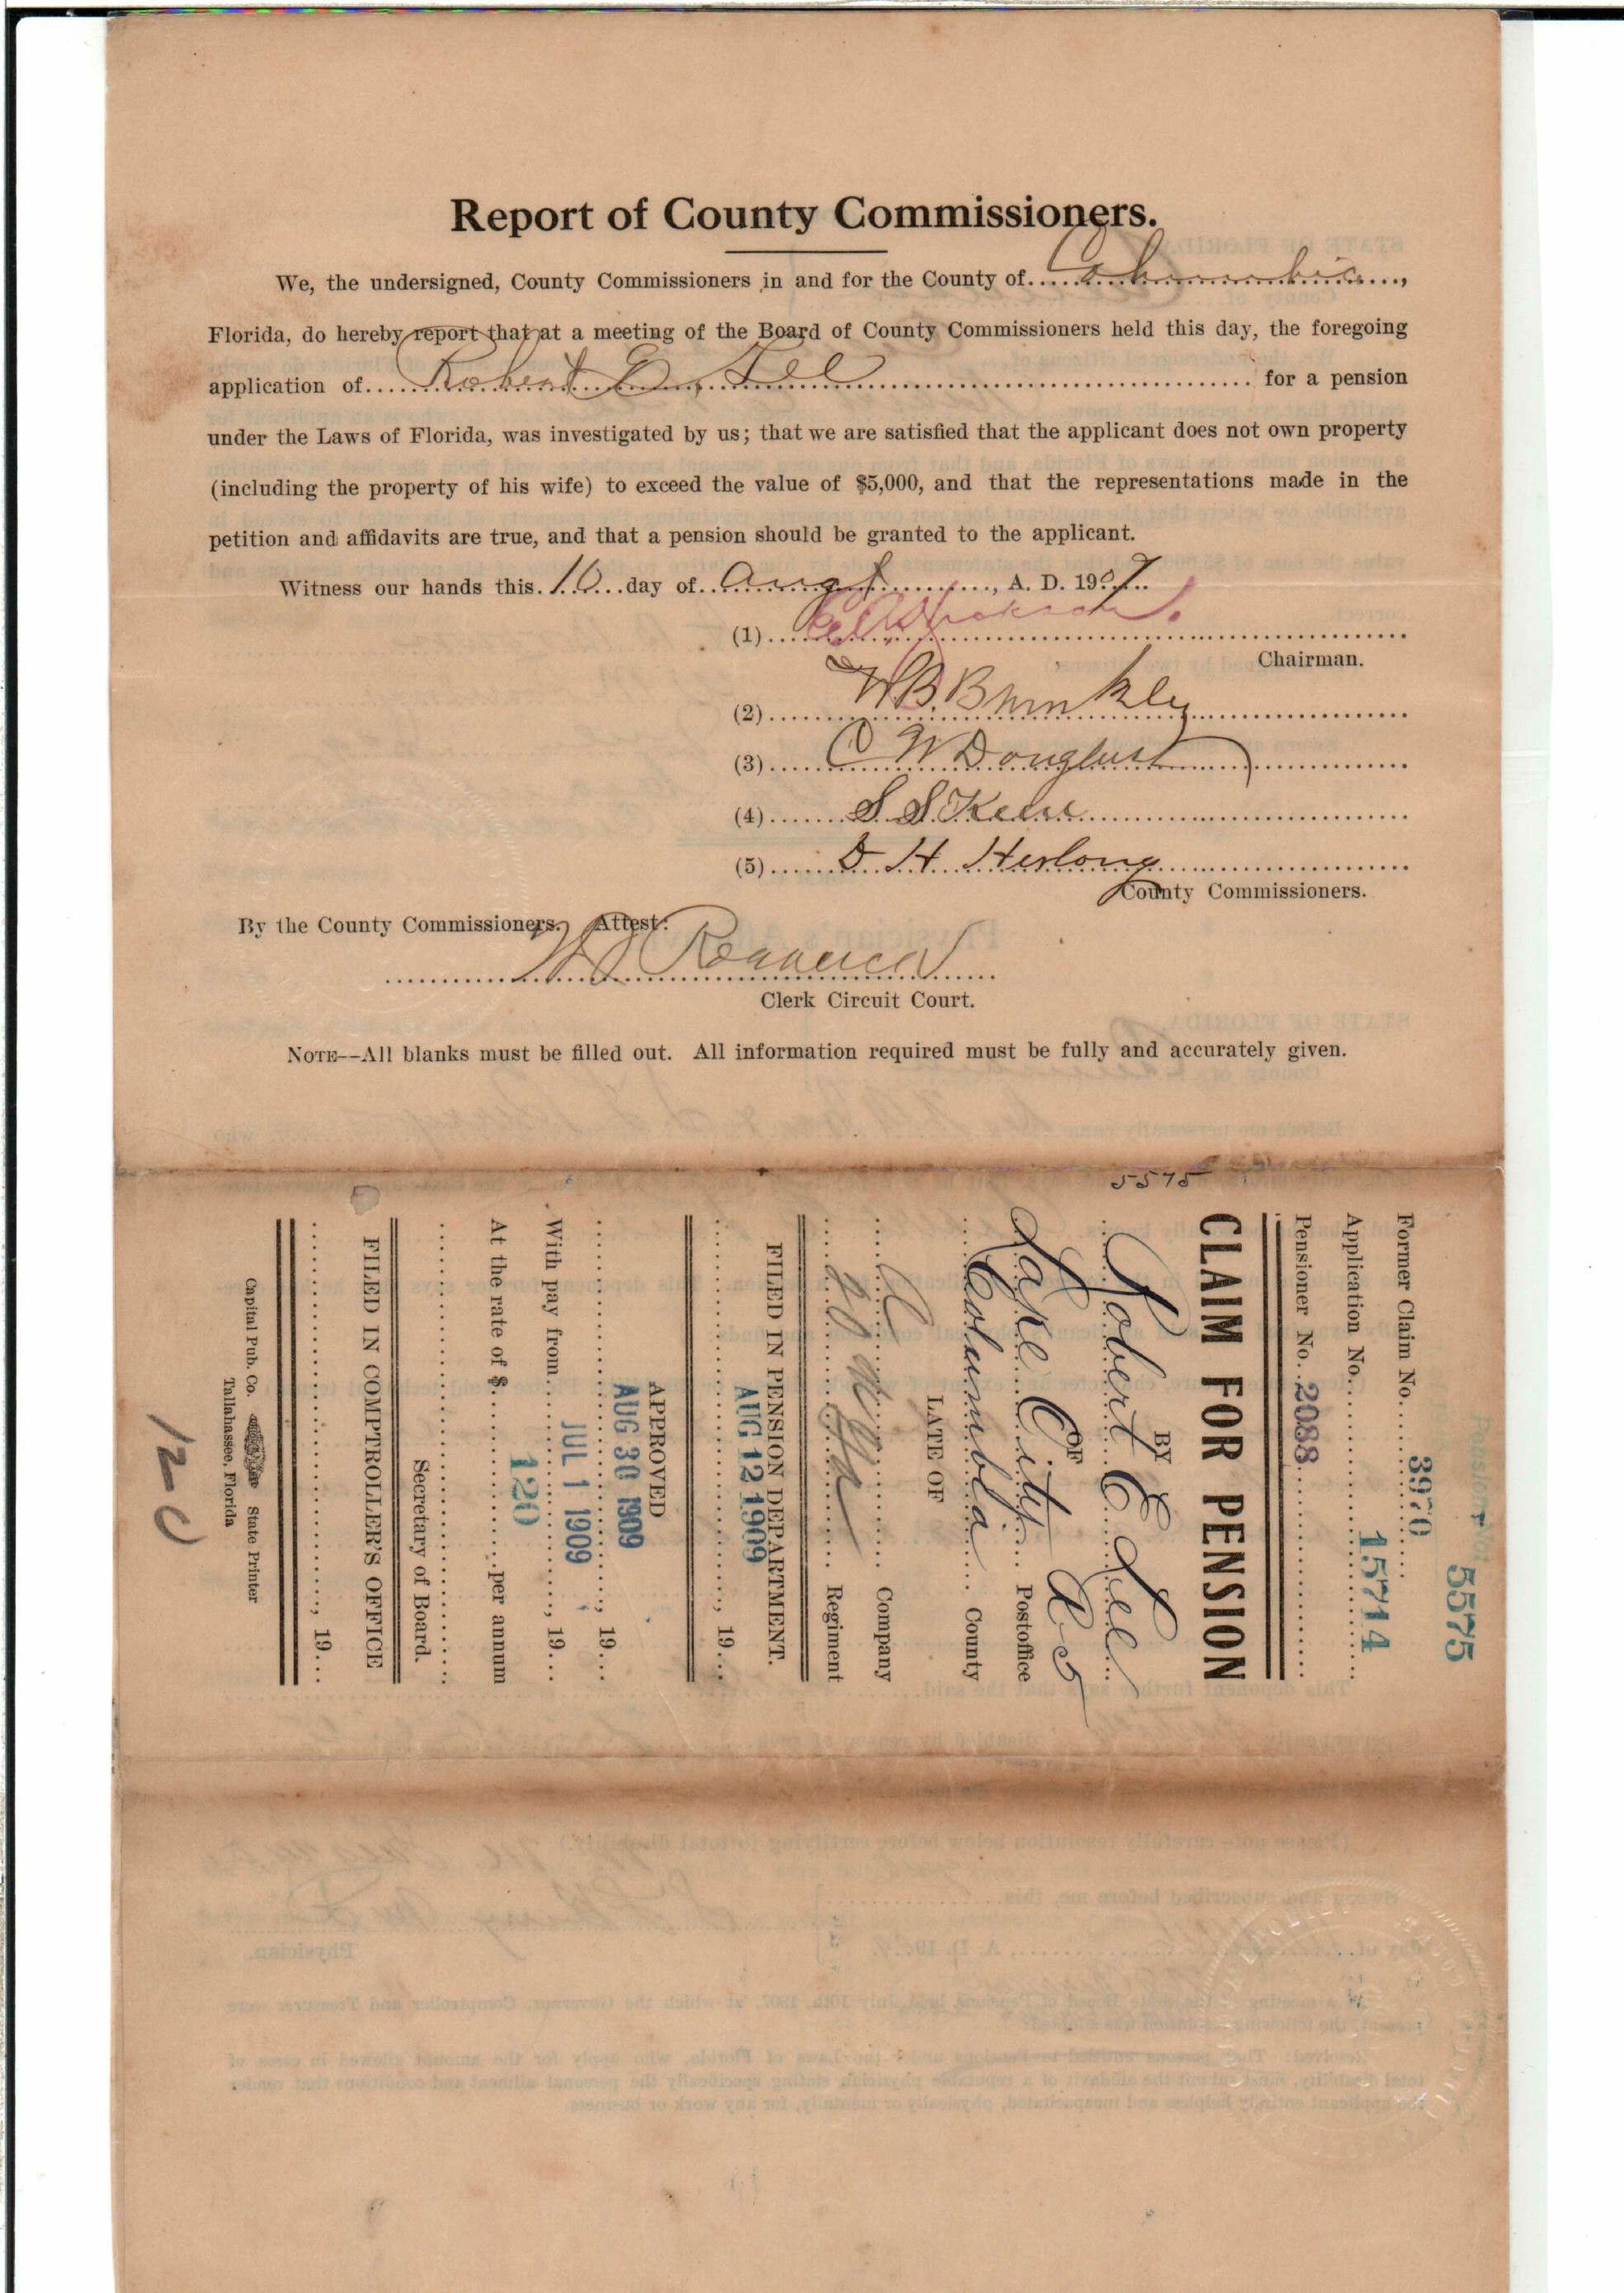 Report of County Commissioners.
We, the undersigned, County Commissioners in and for the County of Columbia,
Florida, do hereby report that at a meeting of the Board of County Commissioners held this day, the foregoing
application of Robert E. Lee for a pension
under the Laws of Florida, was investigated by us; that we are satisfied that the applicant does not own property
(including the property of his wife) to exceed the value of $5,000, and that the representations made in the
petition and affidavits are true, and that a pension should be granted to the applicant.
Witness our hands this 10 day of Augt, A. D. 1909.
(1)
Chairman.
(2) W B. Brinkley
(3) C W Douglass
(4) S S
(5) D H Herlong
County Commissioners.
By the County Commissioners. Attest:
Clerk Circuit Court.
NOTE--All blanks must be filled out. All information required must be fully and accurately given.
5575
5575
Former Claim No. 3970
Application No. 15714
Pensioner No. 2088
CLAIM FOR PENSION
BY
Robert E Lee
OF
Lake City Postoffice
Columbia County
LATE OF
Company
Regiment
FILED IN PENSION DEPARTMENT.
AUG 12 1909, 19
APPROVED
AUG 30 1909, 19
With pay from JUL 1 1909, 19
At the rate of $ 120 per annum
Secretary of Board.
FILED IN COMPTROLLER'S OFFICE
, 19
Capital Pub. Co. State Printer
Tallahassee, Florida
120